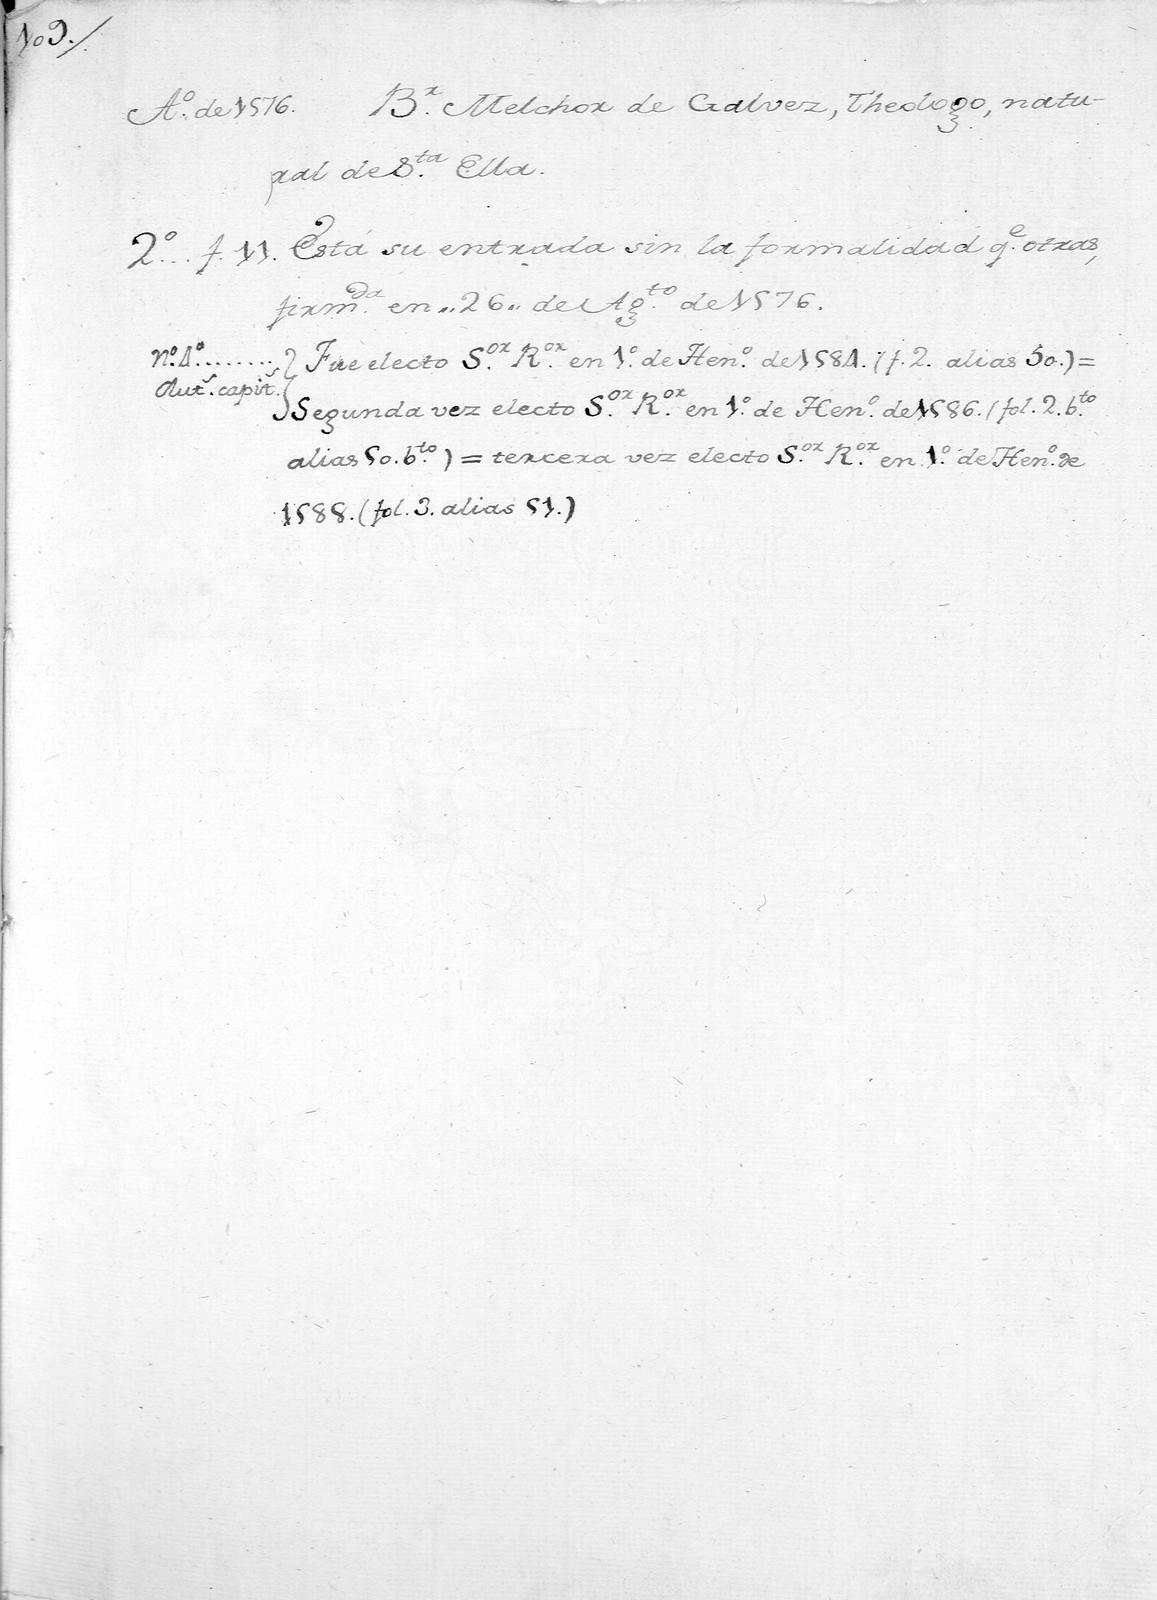 109./
Aº. de 1576. Bʳ. Melchor de Galvez, Theologo, natu-
ral de Sᵗᵃ. Ella.
2º... f. 11. Está su entrada sin la formalidad qᵉ. otras,
firmᵈᵃ. en „26„ de Agᵗᵒ. de 1576.
nº. 4º....... } Fue electo Sᵒʳ. Rᵒʳ. en 1º. de Henº. de 1584. (f. 2. alias 50.) =
Autˢ. capitˢ. } Segunda vez electo Sᵒʳ. Rᵒʳ. en 1º. de Henº. de 1586. (fol. 2. bᵗᵒ
alias 50. bᵗᵒ.) = tercera vez electo Sᵒʳ. Rᵒʳ. en 1º. de Henº. de
1588. (fol. 3. alias 51.)